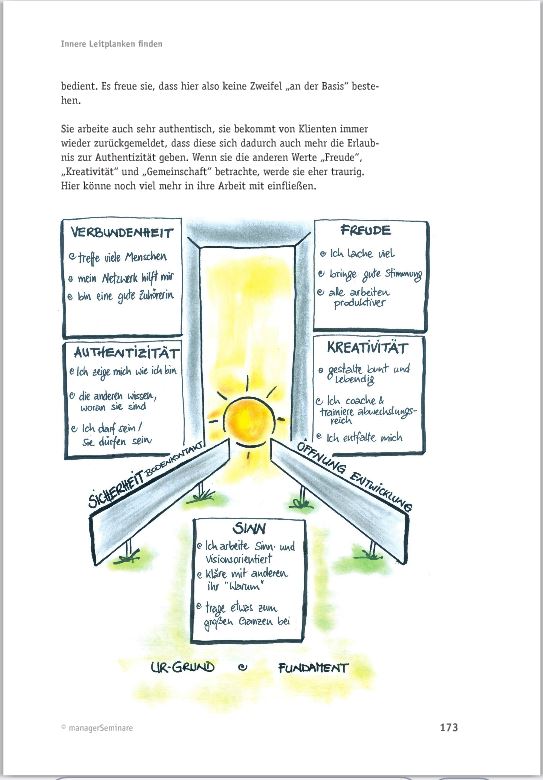 Innere Leitplanken finden
bedient. Es freue sie, dass hier also keine Zweifel „an der Basis“ beste-
hen.
Sie arbeite auch sehr authentisch, sie bekommt von Klienten immer
wieder zurückgemeldet, dass diese sich dadurch auch mehr die Erlaub-
nis zur Authentizität geben. Wenn sie die anderen Werte „Freude“,
„Kreativität“ und „Gemeinschaft“ betrachte, werde sie eher traurig.
Hier könne noch viel mehr in ihre Arbeit mit einfließen.
VERBUNDENHEIT
treffe viele Menschen
mein Netzwerk hilft mir
bin eine gute Zuhörerin
FREUDE
Ich lache viel
bringe gute Stimmung
alle arbeiten
produktiver
AUTHENTIZITÄT
Ich zeige mich wie ich bin
die anderen wissen,
woran sie sind
Ich darf sein /
Sie dürfen sein
KREATIVITÄT
gestalte bunt und
lebendig
Ich coache &
trainiere abwechslungs-
reich
Ich entfalte mich
SICHERHEIT BODENKONTAKT
ÖFFNUNG ENTWICKLUNG
SINN
Ich arbeite Sinn- und
Visionsorientiert
kläre mit anderen
ihr "Warum"
trage etwas zum
großen Ganzen bei
UR-GRUND FUNDAMENT
© managerSeminare
173